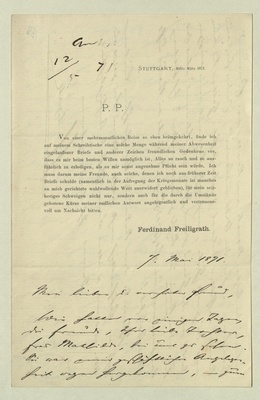 12/5 71
STUTTGART, Mitte März 1871.
P. P.
Von einer mehrmonatlichen Reise so eben heimgekehrt, finde ich
auf meinem Schreibtische eine solche Menge während meiner Abwesenheit
eingelaufener Briefe und anderer Zeichen freundlichen Gedenkens vor,
dass es mir beim besten Willen unmöglich ist, Alles so rasch und so aus-
führlich zu erledigen, als es mir sonst angenehme Pflicht sein würde. Ich
muss darum meine Freunde, auch solche, denen ich noch aus früherer Zeit
Briefe schulde (namentlich in der Aufregung der Kriegsmonate ist manches
an mich gerichtete wohlwollende Wort unerwidert geblieben), für mein seit-
heriges Schweigen nicht nur, sondern auch für die durch die Umstände
gebotene Kürze meiner endlichen Antwort angelegentlich und vertrauens-
voll um Nachsicht bitten.
Ferdinand Freiligrath.
7. Mai 1871.
Mein lieber, verehrter Freund,
Wir hatten vor einigen Tagen
die Freude, Ihre liebe Tochter,
Frau Mathilde, bei uns zu sehen.